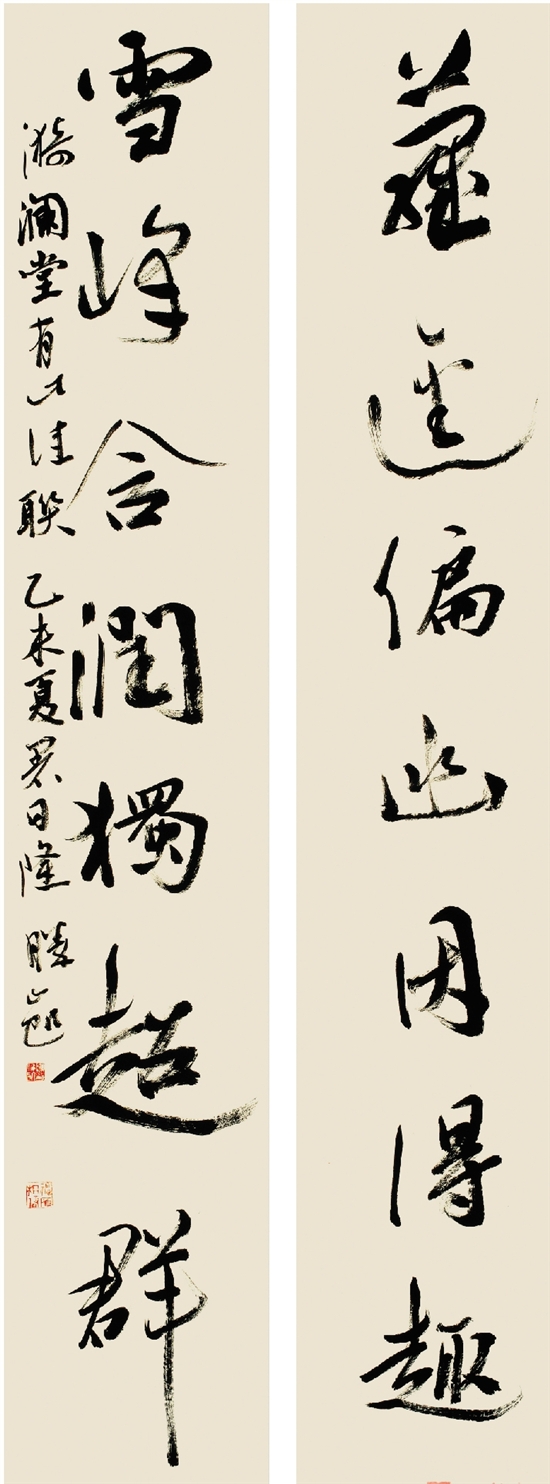 蘿逕偏幽因得趣
雪峰含潤獨超群
漪瀾堂有此佳联 乙未夏日隆 勝